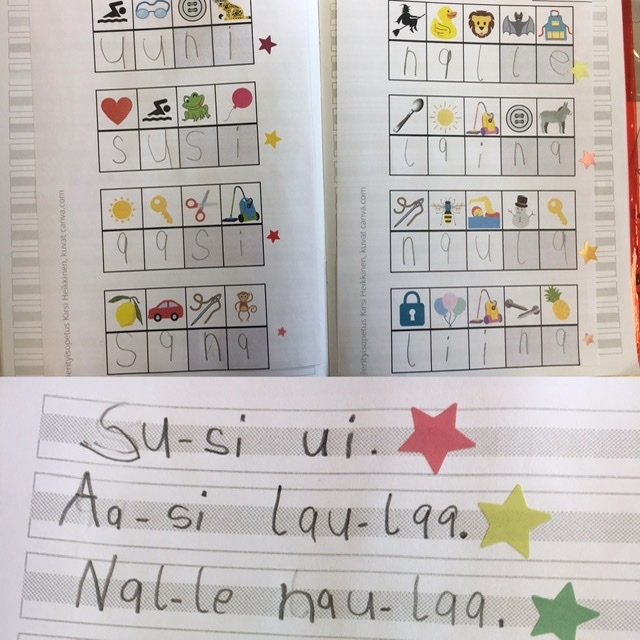 u u n i
s u s i
a a s i
s a n a
erityisopetus Kirsi Heikkinen, kuvat canva.com
n a l l e
l a i n a
n a u l a
l i i n a
erityisopetus Kirsi Heikkinen, kuvat canva.com
Su-si ui.
Aa-si lau-laa.
Nal-le nau-laa.